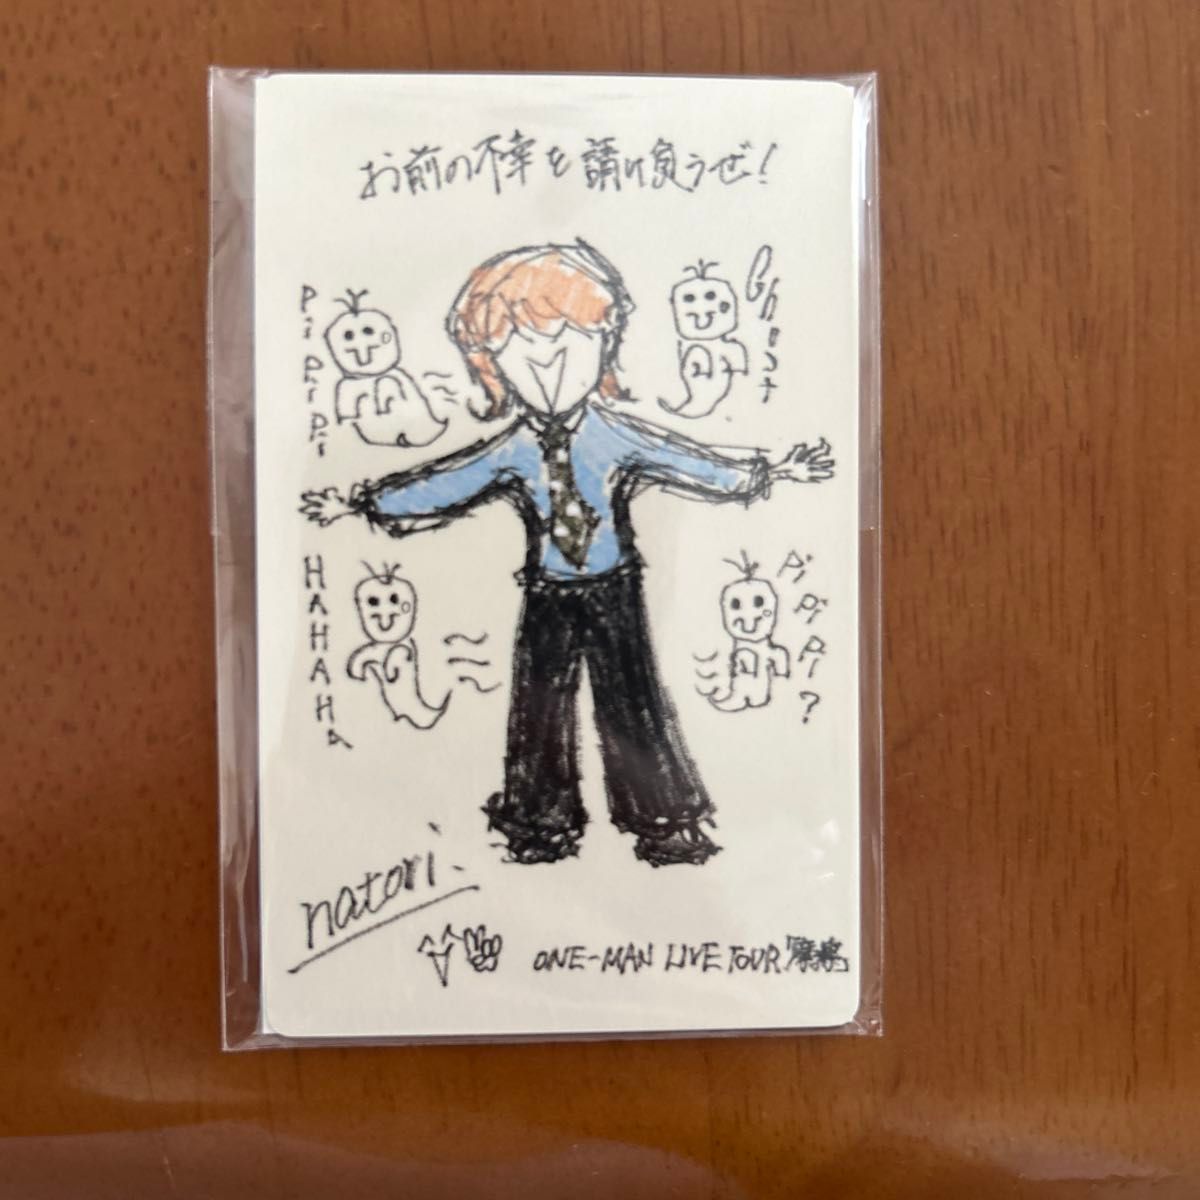 お前の不幸を請け負うぜ!
Pi Pi Pi Pi
Ghost
HAHAHAHA
Pi Pi Pi?
natori.
ONE-MAN LIVE TOUR 摩擦